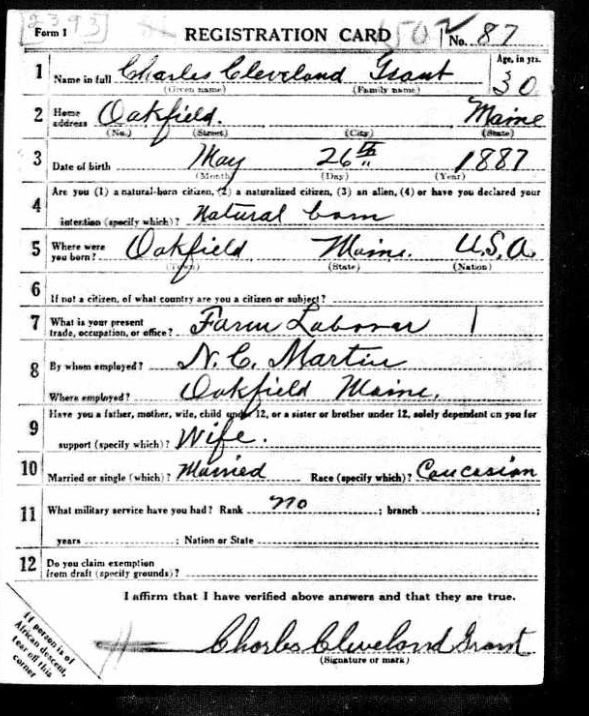 2393
Form 1 REGISTRATION CARD No. 87
Age, in yrs.
1 Name in full Charles Cleveland Grant 30
(Given name) (Family name)
2 Home address Oakfield. Maine
(No.) (Street) (City) (State)
3 Date of birth May 26th 1887
(Month) (Day) (Year)
Are you (1) a natural-born citizen, (2) a naturalized citizen, (3) an alien, (4) or have you declared your
4 intention (specify which)? Natural born
5 Where were you born? Oakfield Maine. U.S.A.
(Town) (State) (Nation)
6 If not a citizen, of what country are you a citizen or subject?
7 What is your present trade, occupation, or office? Farm Laborer
8 By whom employed? N. C. Martin
Where employed? Oakfield Maine.
Have you a father, mother, wife, child under 12, or a sister or brother under 12, solely dependent on you for
9 support (specify which)? Wife.
10 Married or single (which)? Married Race (specify which)? Caucasian
11 What military service have you had? Rank no ; branch ;
years ; Nation or State
12 Do you claim exemption from draft (specify grounds)?
I affirm that I have verified above answers and that they are true.
Charles Cleveland Grant
(Signature or mark)
If person is of
African descent,
tear off this
corner